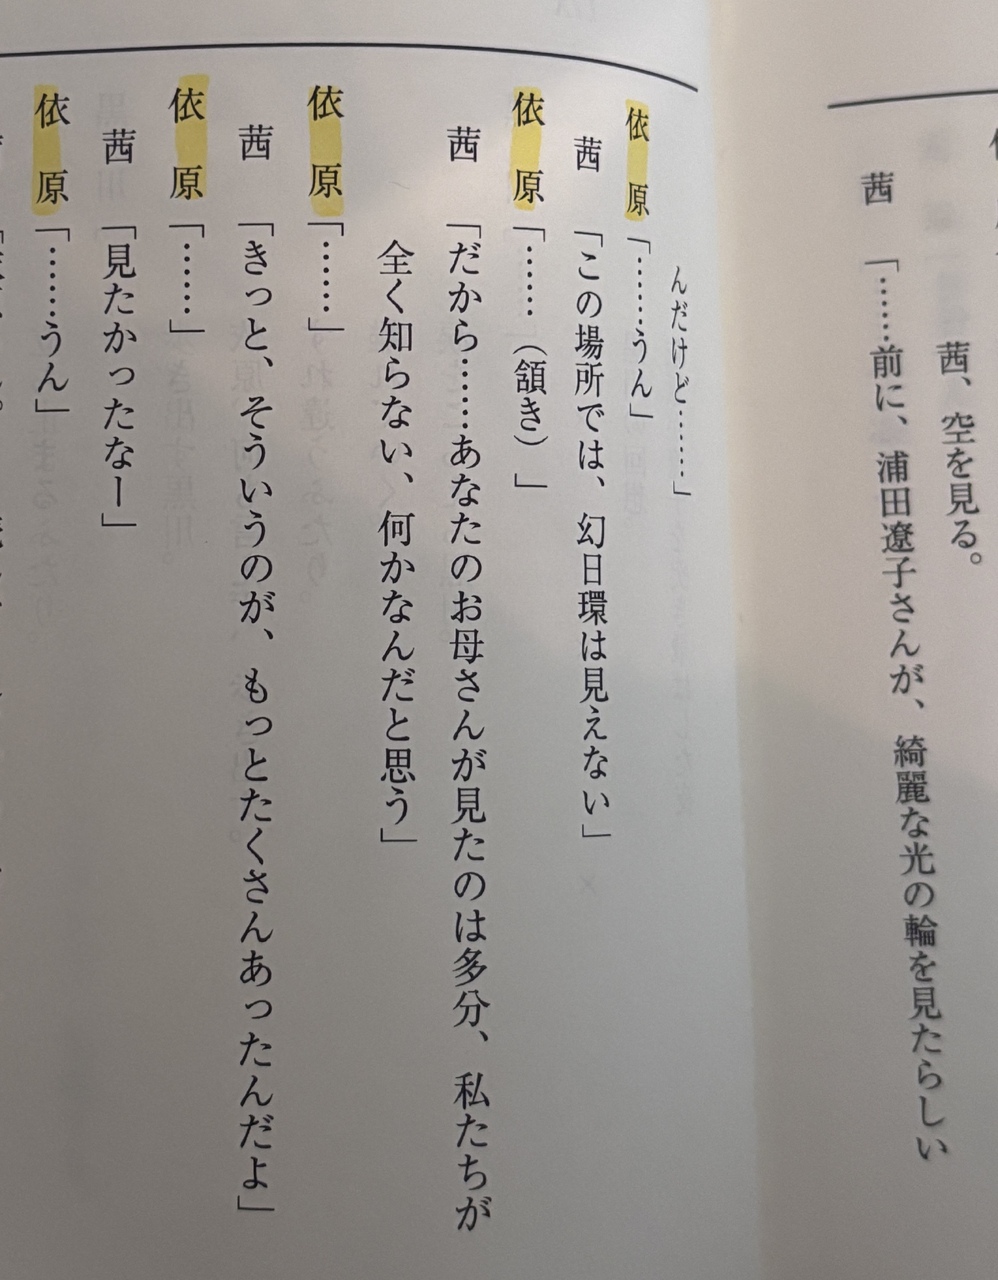 茜、空を見る。
茜「……前に、浦田遼子さんが、綺麗な光の輪を見たらしい
んだけど……」
依原「……うん」
茜「この場所では、幻日環は見えない」
依原「……（頷き）」
茜「だから……あなたのお母さんが見たのは多分、私たちが
全く知らない、何かなんだと思う」
依原「……」
茜「きっと、そういうのが、もっとたくさんあったんだよ」
依原「……」
茜「見たかったなー」
依原「……うん」